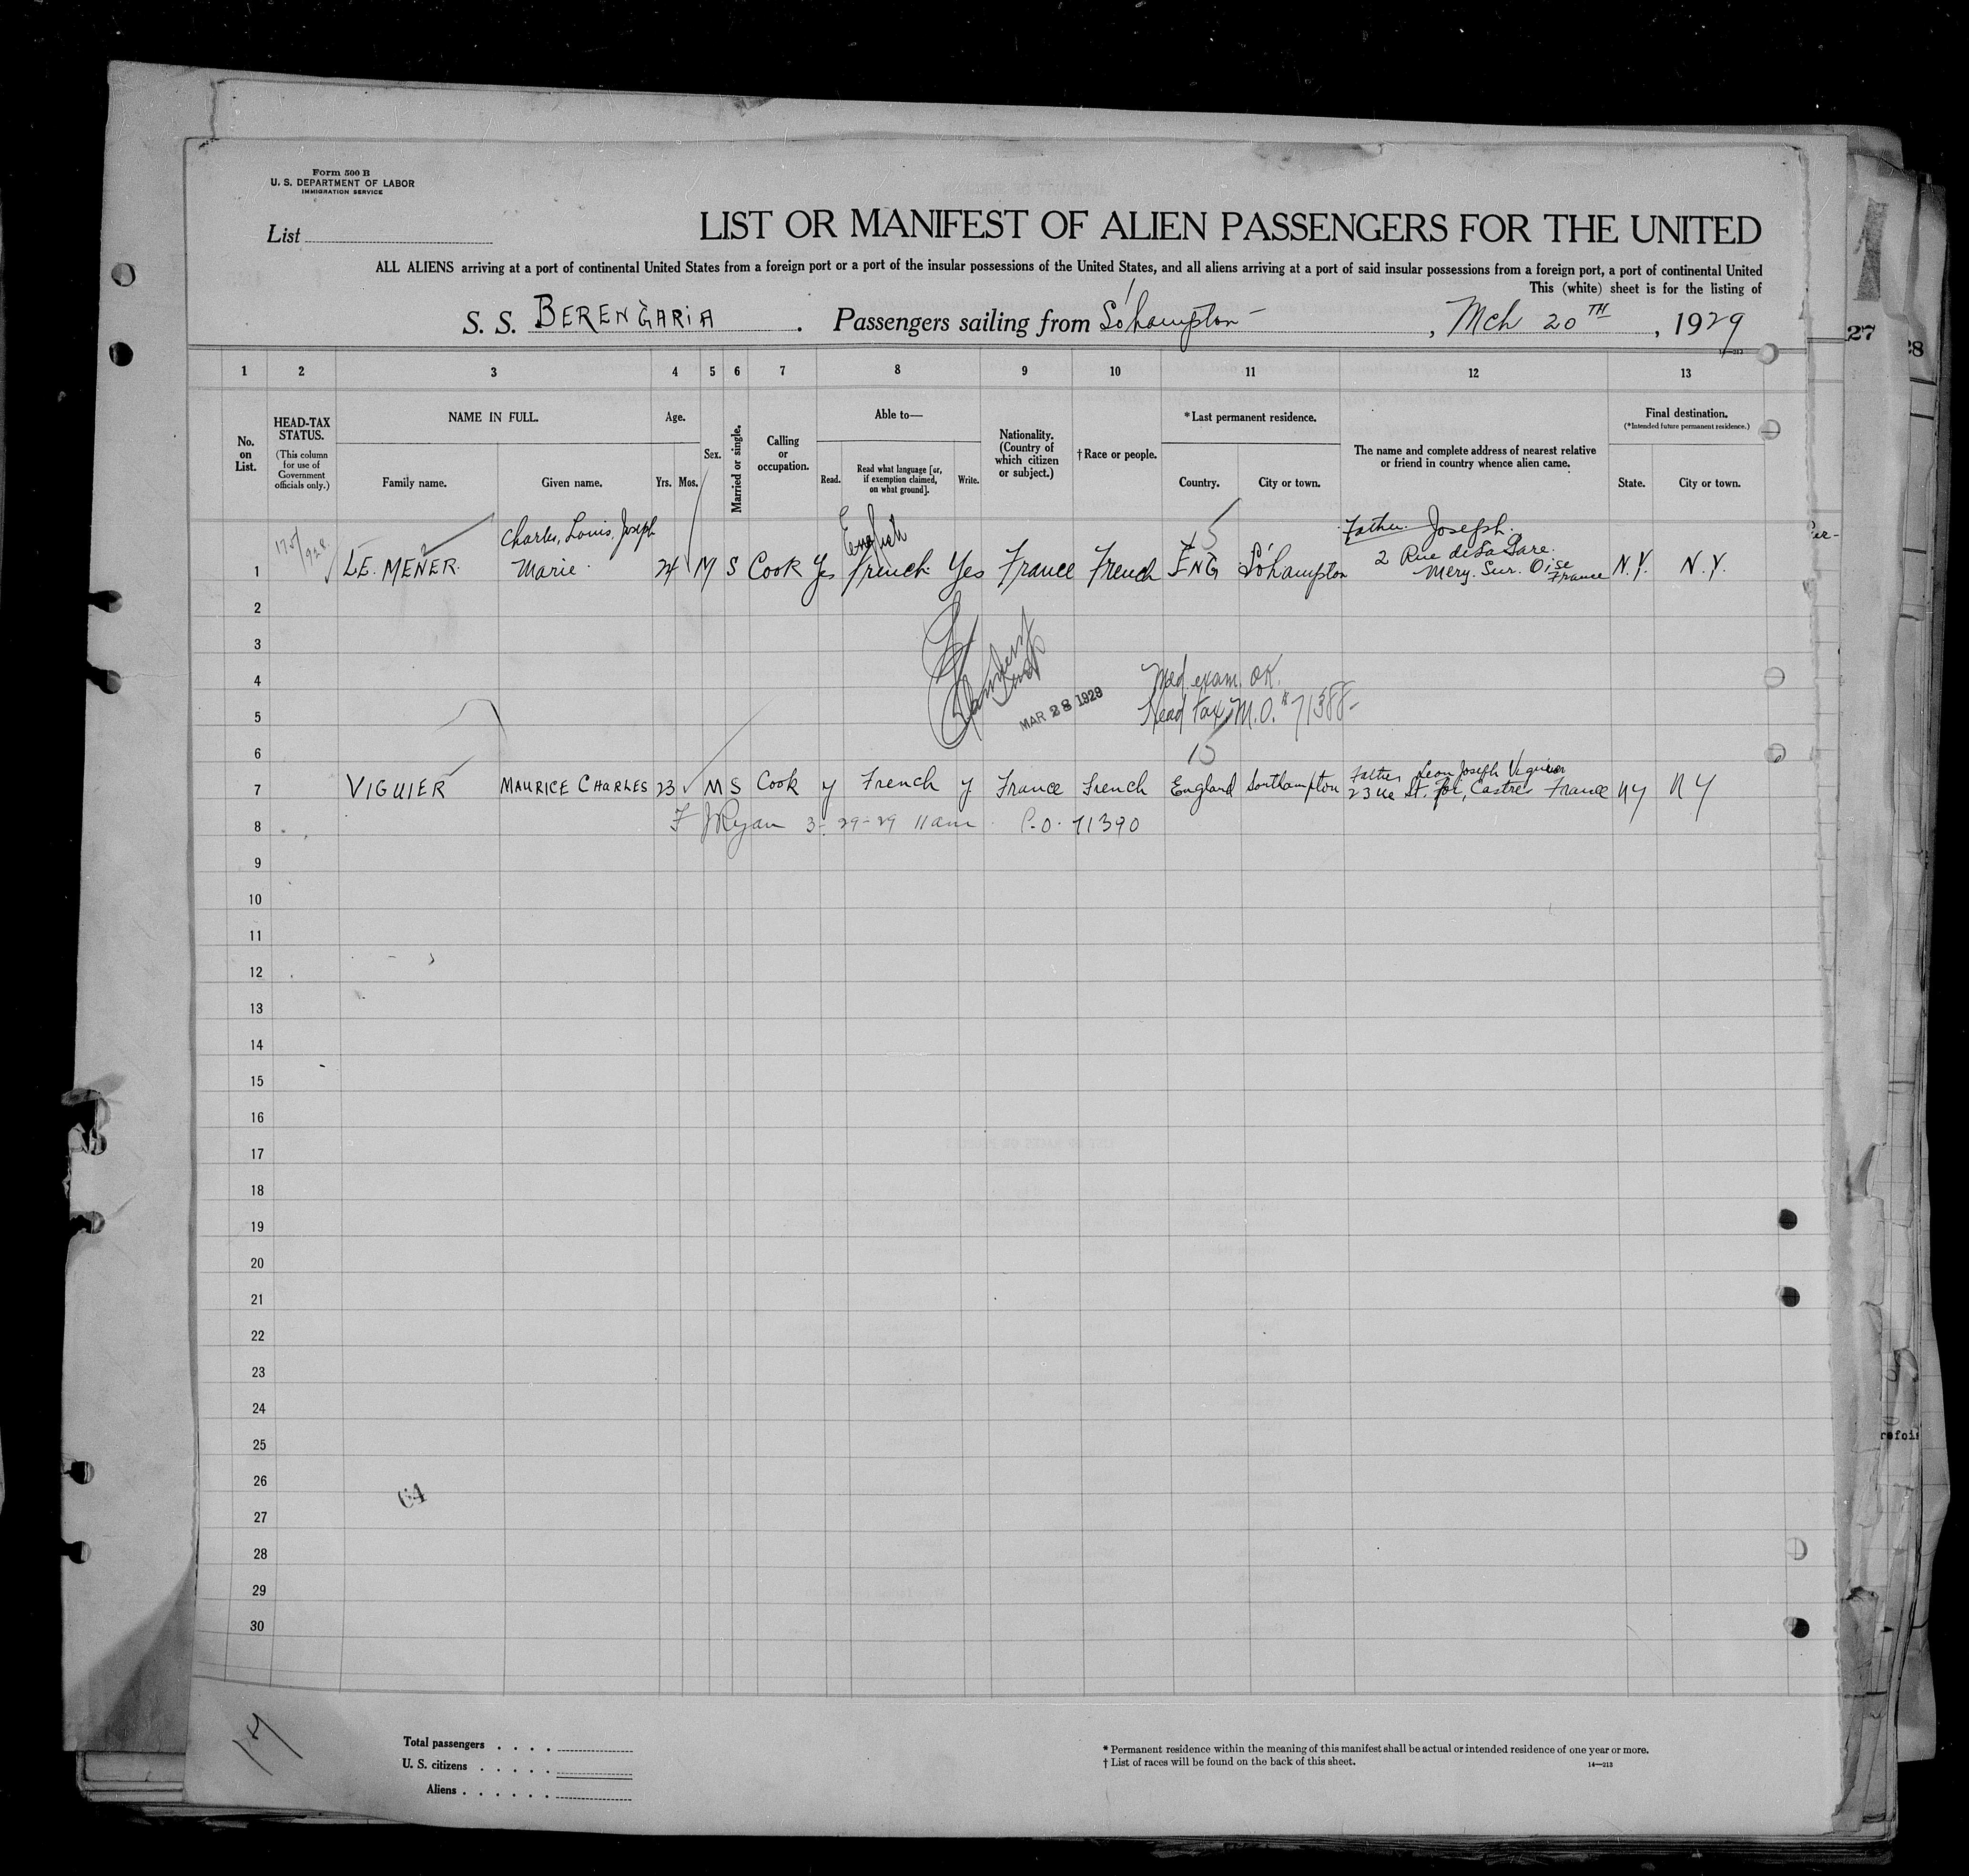 Form 500 B
U. S. DEPARTMENT OF LABOR
IMMIGRATION SERVICE
List
LIST OR MANIFEST OF ALIEN PASSENGERS FOR THE UNITED
ALL ALIENS arriving at a port of continental United States from a foreign port or a port of the insular possessions of the United States, and all aliens arriving at a port of said insular possessions from a foreign port, a port of continental United
This (white) sheet is for the listing of
S. S. BERENGARIA . Passengers sailing from So'hampton , Mch 20TH , 1929
27
28
14—213
1 2 3 4 5 6 7 8 9 10 11 12 13
No. on List.
HEAD-TAX STATUS.
(This column for use of Government officials only.)
NAME IN FULL.
Family name.
Given name.
Age.
Yrs. Mos.
Sex.
Married or single.
Calling or occupation.
Able to—
Read.
Read what language [or, if exemption claimed, on what ground].
Write.
Nationality. (Country of which citizen or subject.)
† Race or people.
* Last permanent residence.
Country.
City or town.
The name and complete address of nearest relative or friend in country whence alien came.
Final destination.
(*Intended future permanent residence.)
State.
City or town.
175/928
Charles, Louis, Joseph English 15 Father Joseph.
1 LE. MENER. Marie. 24 M S Cook Yes French Yes France French ENG So'hampton 2 Rue de La Gare. Mery. Sur. Oise France N.Y. N.Y.
2
3
4 Med. exam. OK.
MAR 28 1929
5 Head tax M.O. # 71388-
6 15
7 VIGUIER MAURICE CHARLES 23 M S Cook y French y France French England Southampton Father Leon Joseph Viguier 23 Ue St. Foi, Castres France NY NY
8 F J Ryan 3-29-29 11am P.O. 71390
9
10
11
12
13
14
15
16
17
18
19
20
21
22
23
24
25
26
64
27
28
29
30
Total passengers . . . .
U. S. citizens . . . . .
Aliens . . . . . .
* Permanent residence within the meaning of this manifest shall be actual or intended residence of one year or more.
† List of races will be found on the back of this sheet.
14—213